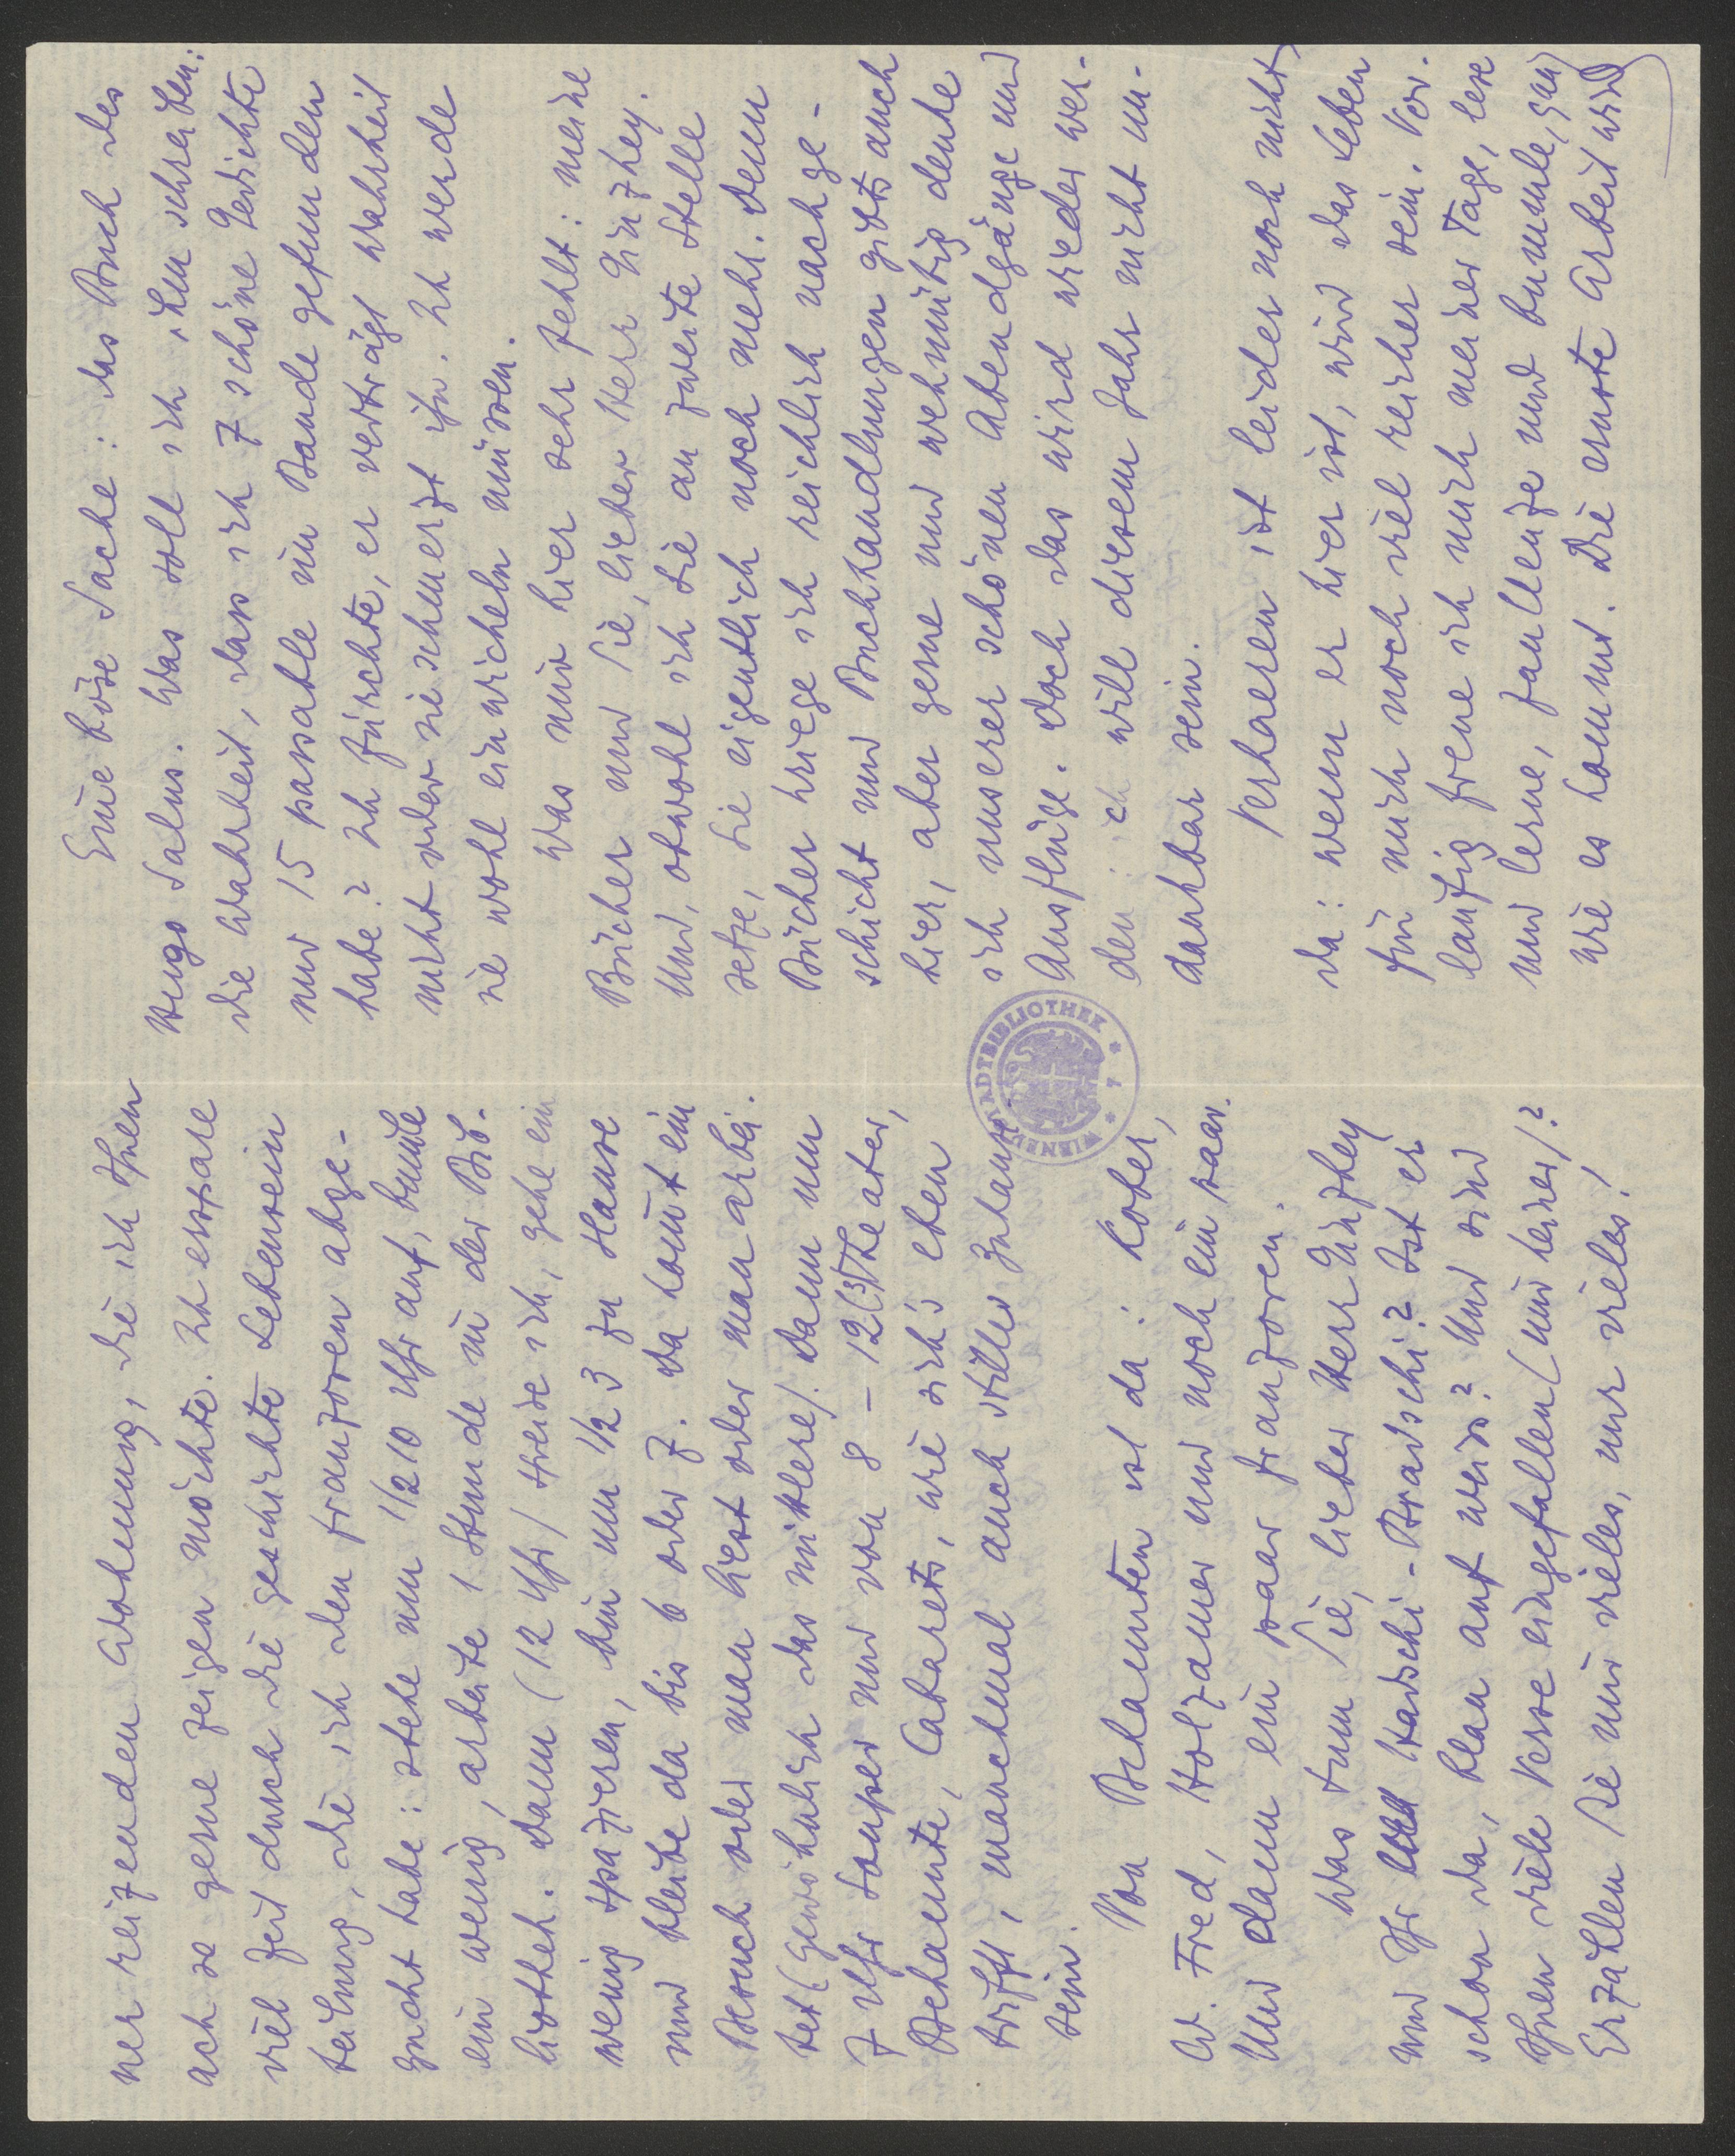 ner reizenden Wohnung, die ich Ihnen
ach so gerne zeigen möchte. Ich erspare
viel Zeit durch die geschickte Lebensein
teilung, die ich den Franzosen abge-
guckt habe: stehe um 1/2 10 Uhr auf, bumle
ein wenig, arbeite 1 Stunde in der Bib-
liothek. Dann (12 Uhr) speise ich, gehe ein
wenig spazieren, bin um 1/2 3 zu Hause
und bleibe da bis 6 oder 7. Da komt ein
Besuch oder man liest oder man arbei-
tet (gewöhnlich das mittlere). Dann um
7 Uhr Souper und von 8 – 12 Theater,
Bekannte, Cabarets, wie sich's eben
trifft, manchmal auch stilles Zuhause
sein.
Von Bekannten ist da: Kober,
W. Fred, Holzamer und noch ein paar.
Und dann ein paar Franzosen.
Was tun Sie, lieber Herr Ginzkey
und Ihr Hadschi-Bradschi? Ist er
schon da, blau auf weiss? Und sind
Ihnen viele Verse eingefallen (mir keiner)?
Erzählen Sie mir vieles, nur vieles!
Eine böse Sache: das Buch des
Hugo Salus. Was soll ich ihm schreiben:
die Wahrheit, dass ich 7 schöne Gedichte
und 15 passable im Bande gefunden
habe? Ich fürchte, er verträgt Wahrheit
nicht oder sie schmerzt ihn. Ich werde
sie wohl einwickeln müssen.
Was mir hier sehr fehlt: meine
Bücher und Sie, lieber Herr Ginzkey.
Und, obwohl ich Sie an zweite Stelle
setze, Sie eigentlich noch mehr. Denn
Bücher kriege ich reichlich nachge-
schickt und Buchhandlungen gibts auch
hier, aber gerne und wehmütig denke
ich unserer schönen Abendgänge und
Ausflüge. Doch das wird wieder wer-
den: ich will diesem Jahr nicht un-
dankbar sein.
Verhaeren ist leider noch nicht
da: wenn er hier ist, wird das Leben
für mich noch viel reicher sein. Vor-
läufig freue ich mich meiner Tage, lese
und lerne, faullenze und bummle, ganz
wie es kommt. Die ernste Arbeit wird
WIENER STADTBIBLIOTHEK